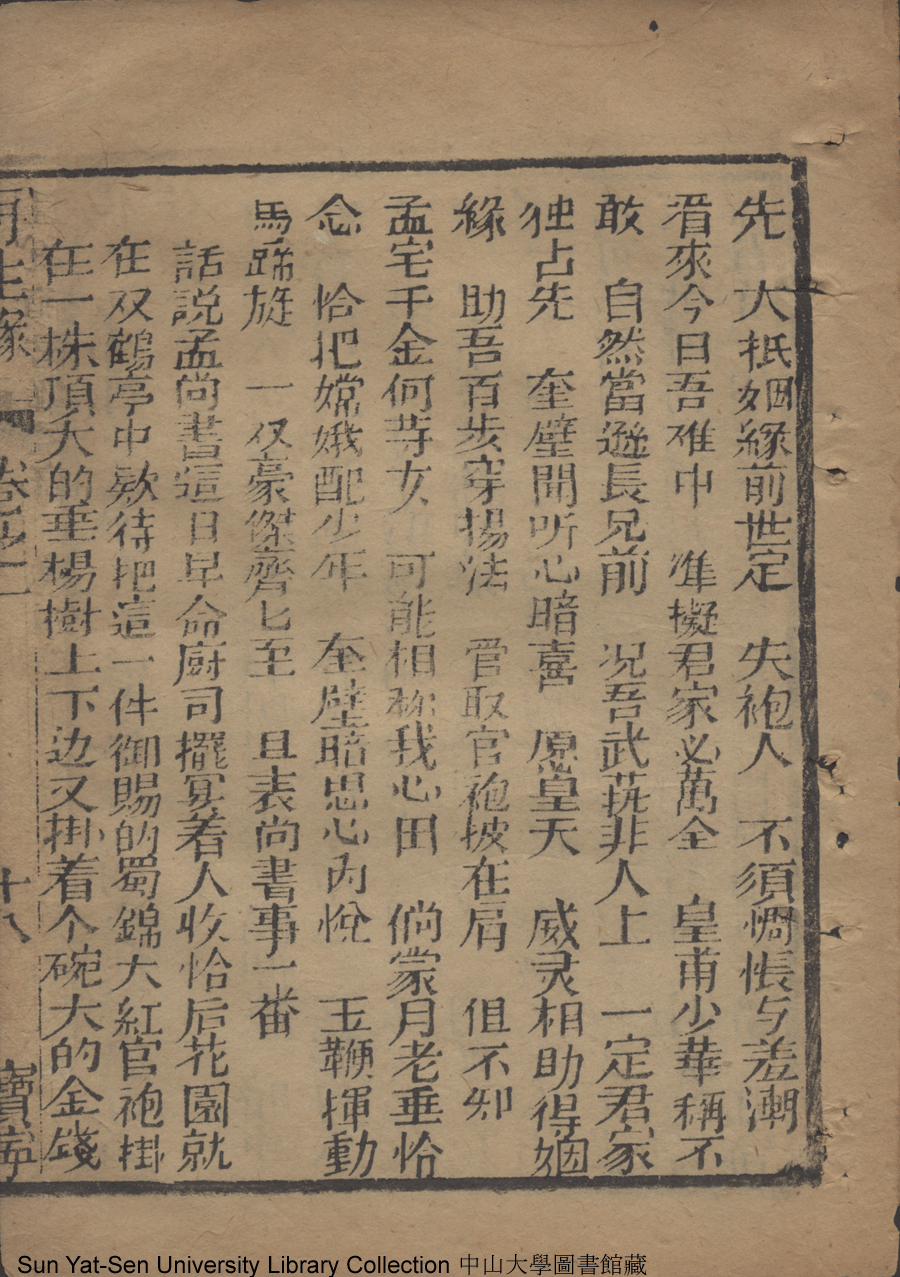 先　大抵姻緣前世定　失袍人　不須惆悵与羞潮
看來今日吾难中　准擬君家必萬全　皇甫少華稱不
敢　自然當遜長兄前　况吾武芸非人上　一定君家
独占先　奎璧闻听心暗喜　愿皇天　威灵相助得姻
緣　助吾百步穿揚法　管取官袍披在肩　但不知
孟宅千金何等女　可能相称我心田　倘蒙月老垂恰
念　恰把嫦娥配少年　奎壁暗思心内悅　玉鞭揮動
馬蹄旋　一双豪傑齊匕至　且表尚書事一番
話説孟尚書這日早命廚司擺宴着人收恰后花園就
在双鶴亭中欵待把這一件御賜的蜀錦大紅官袍掛
在一株頂大的垂楊樹上下边又掛着个碗大的金錢
卷之二　十八　寶寧
Sun Yat-Sen University Library Collection 中山大學圖書館藏